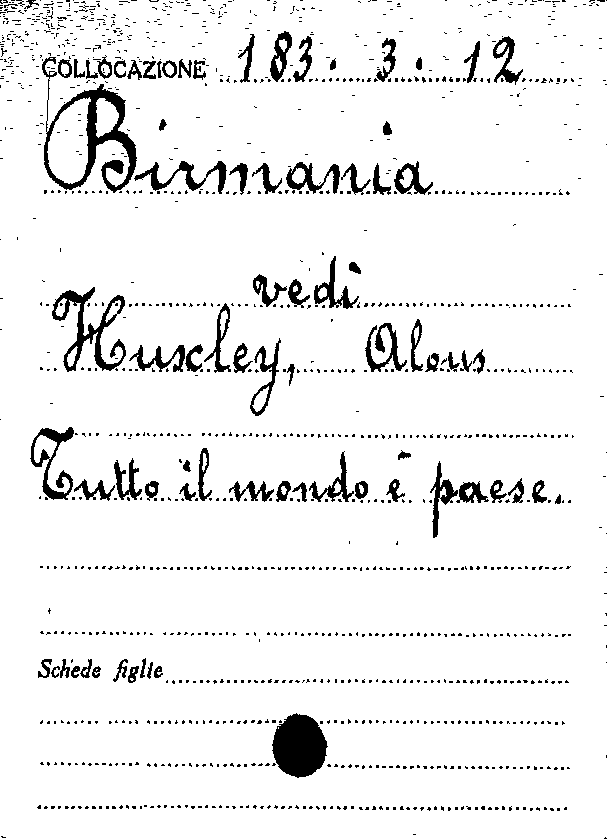 COLLOCAZIONE 183. 3. 12
Birmania
vedi
Huxley, Alous
Tutto il mondo è paese.
Schede figlie